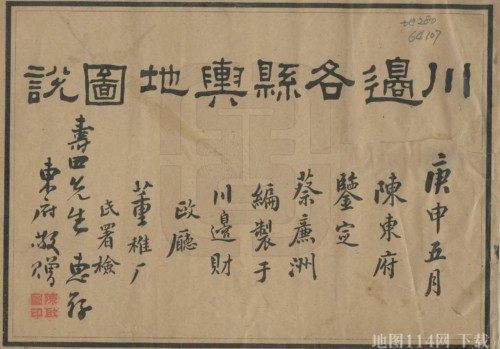 川邊各縣輿地圖說
庚申五月
陳東府
鑒定
蔡廉洲
編製于
川邊財
政廳
董稚厂
氏署檢
壽先生惠存
東府敬贈
地图114网 下载